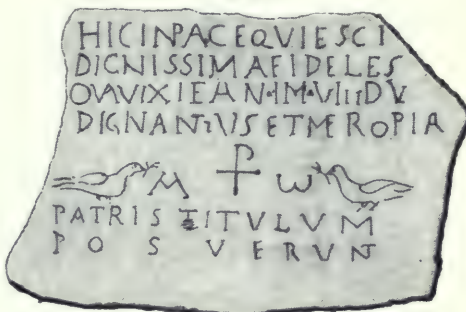 HICINPACEQVIESCI
DICNISSIMAFIDELES
QVAVIXIEAN·IM·VIIIDV
DIGNANTIVSETMEROPIA
A ⳨ ω
PATRIS TITVLVM
POSVERVN